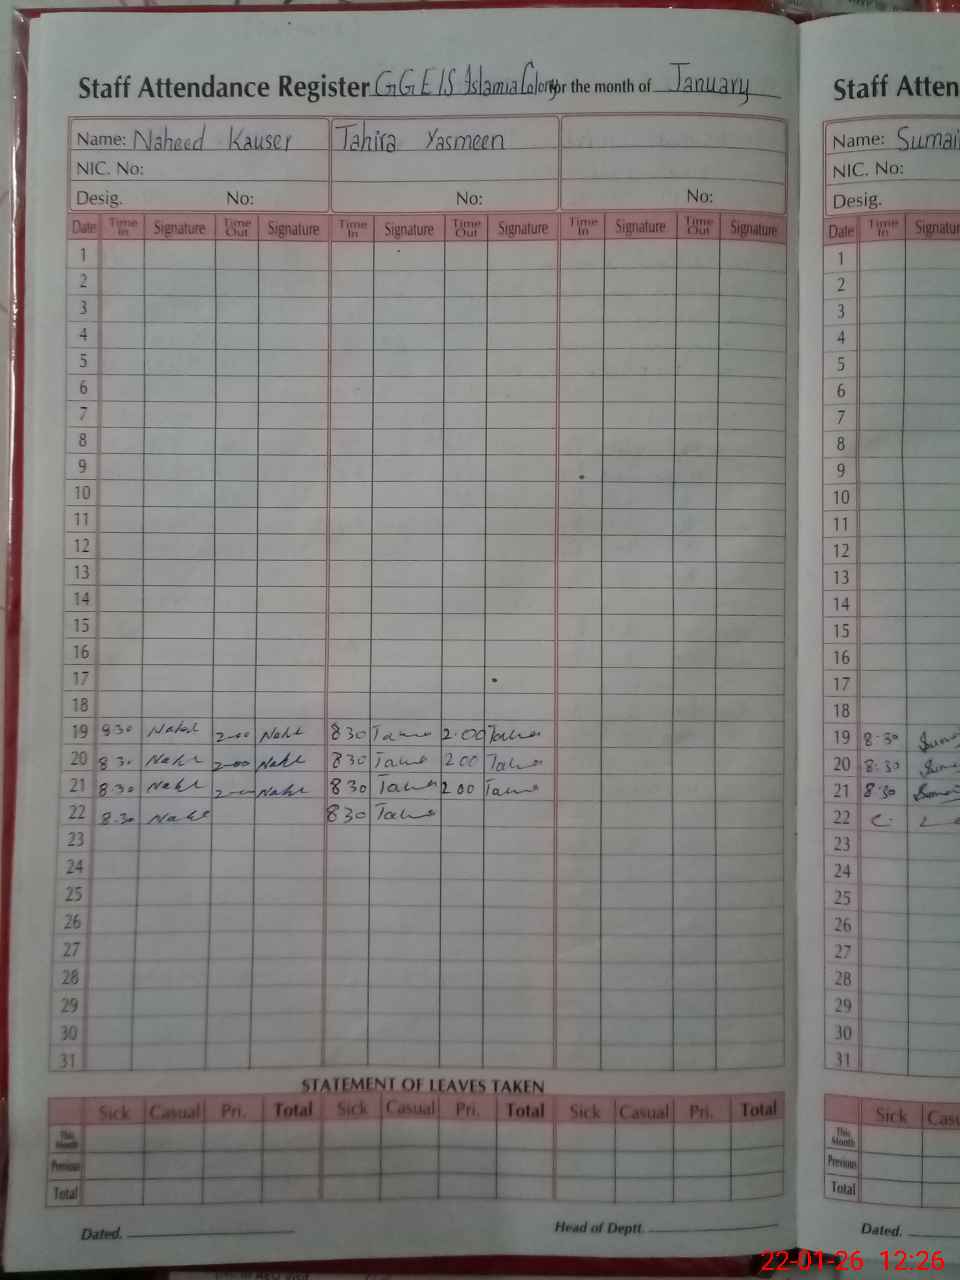 Staff Attendance Register GGEIS Islamia Colony for the month of January
Name: Naheed Kauser Tahira Yasmeen
NIC. No:
Desig. No: No: No:
Date Time In Signature Time Out Signature Time In Signature Time Out Signature Time In Signature Time Out Signature
1
2
3
4
5
6
7
8
9
10
11
12
13
14
15
16
17
18
19 8 30 2-00 8 30 2.00
20 8 30 2-00 8 30 2 00
21 8.30 8 30 2 00
22 8.30 8 30
23
24
25
26
27
28
29
30
31
STATEMENT OF LEAVES TAKEN
Sick Casual Pri. Total Sick Casual Pri. Total Sick Casual Pri. Total
This Month
Previous
Total
Dated. Head of Deptt.
Staff Atten
Name: Sumai
NIC. No:
Desig.
Date Time In Signatur
1
2
3
4
5
6
7
8
9
10
11
12
13
14
15
16
17
18
19 8.30
20 8.30
21 8.30
22
23
24
25
26
27
28
29
30
31
Sick Casu
This Month
Previous
Total
Dated.
22-01-26 12:26